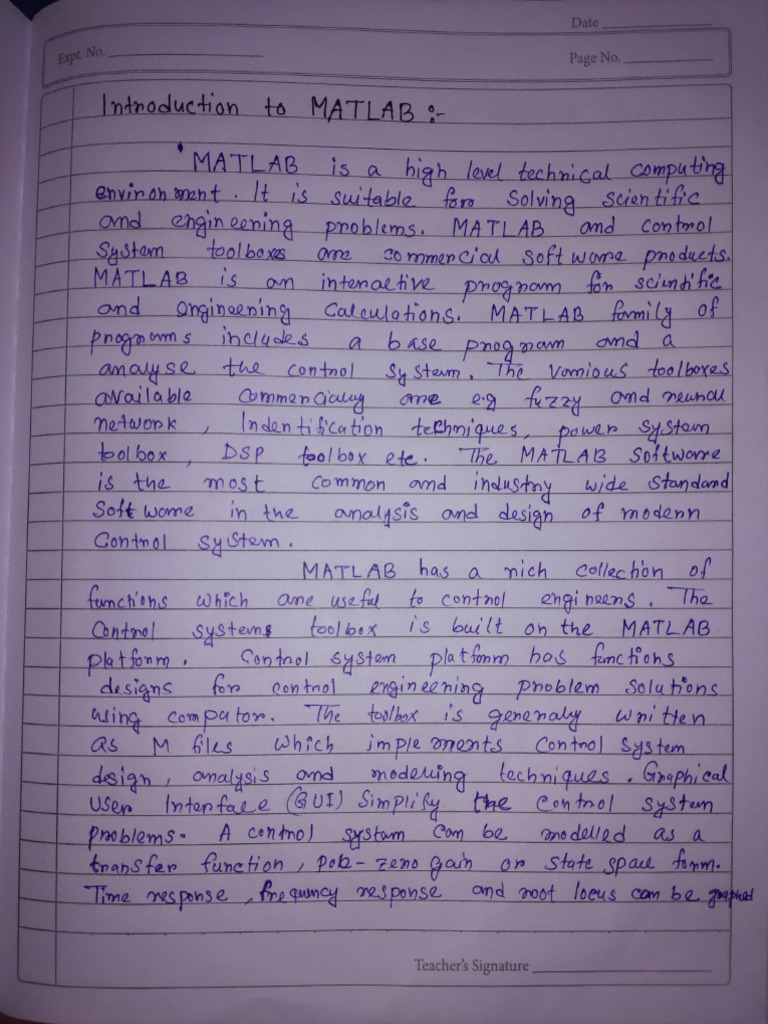 Date
Expt. No.
Page No.
Introduction to MATLAB :-
MATLAB is a high level technical computing
environment. It is suitable for Solving scientific
and engineering problems. MATLAB and control
System toolboxes are commercial Software products.
MATLAB is an interactive program for scientific
and engineering Calculations. MATLAB family of
programs includes a base program and a
analyse the control System. The various toolboxes
available Commercially are e.g fuzzy and neural
network, Indentification techniques, power System
toolbox, DSP toolbox etc. The MATLAB Software
is the most common and industry wide Standard
Software in the analysis and design of modern
Control System.
MATLAB has a rich collection of
functions which are useful to control engineers. The
Control systems toolbox is built on the MATLAB
platform. Control system platform has functions
designs for control engineering problem solutions
using computor. The toolbox is generaly written
as M files which implements Control System
design, analysis and modeling techniques. Graphical
User Interface (GUI) Simplify the control system
problems. A control system can be modelled as a
transfer function, pole-zero gain or state space form.
Time response, frequency response and root locus can be graphed
Teacher's Signature